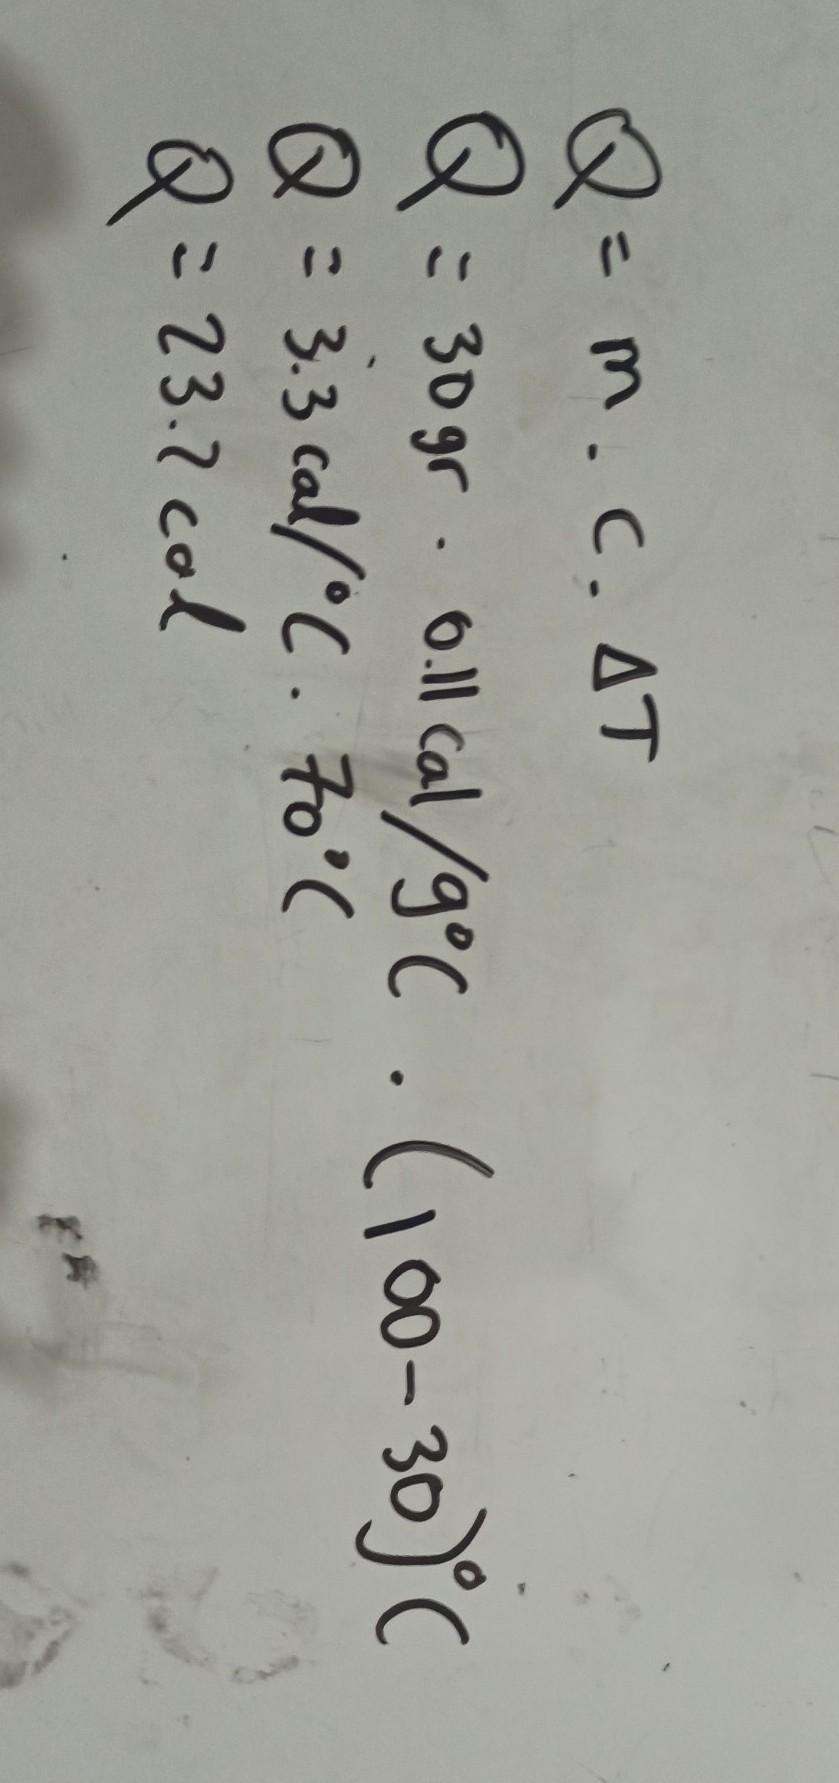 Q = m . c . ΔT
Q = 30gr . 0.11 cal/g°C . (100-30)°C
Q = 3.3 cal/°C . 70°C
Q = 23.2 cal